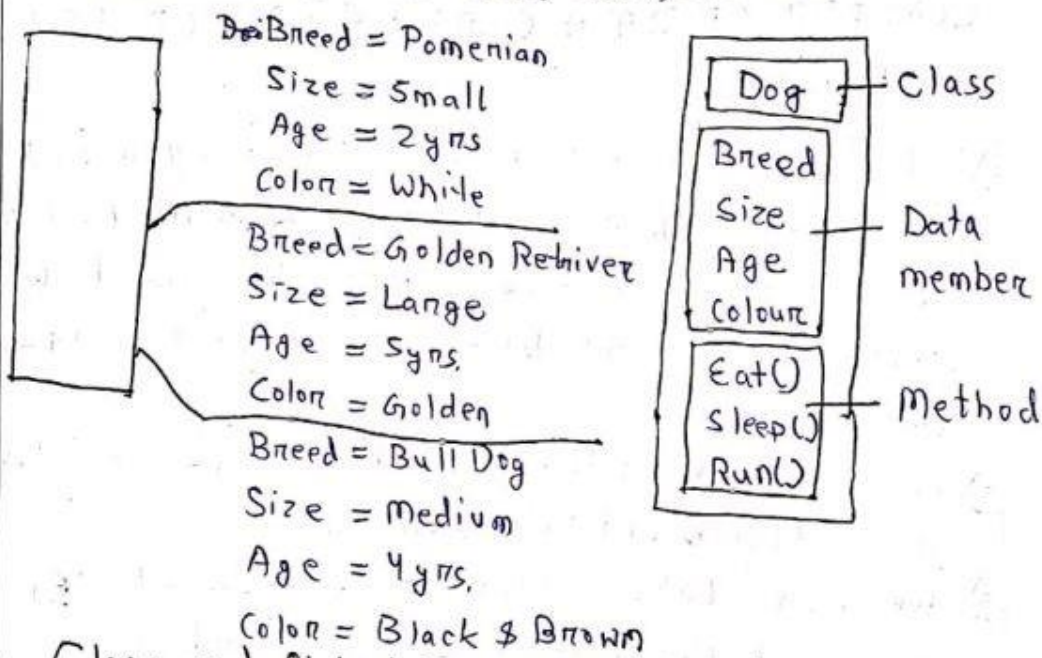 Breed = Pomenian
Size = Small
Age = 2yrs
Color = White
Breed = Golden Retriver
Size = Large
Age = 5yrs.
Color = Golden
Breed = Bull Dog
Size = Medium
Age = 4yrs.
Color = Black & Brown
Dog
Class
Breed
Size
Age
Colour
Data
member
Eat()
Sleep()
Run()
Method